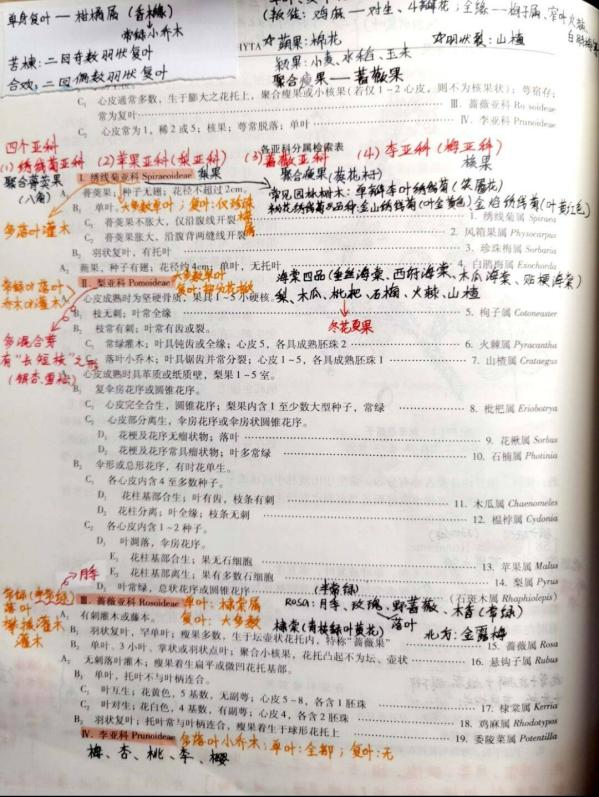 单身复叶 — 柑橘属（香橼）
常绿小乔木
苦楝：二回奇数羽状复叶
合欢：二回偶数羽状复叶
☆蘋果：棉花
☆羽状裂：山楂
颖果：小麦、水稻、玉米
聚合瘦果 — 蔷薇果
C₁ 心皮通常多数，生于膨大之花托上，聚合瘦果或小核果（若仅1-2心皮，则不为核果状）；萼宿存；
常为复叶 Ⅲ. 蔷薇亚科 Rosoideae
C₂ 心皮常为1，稀2或5；核果；萼常脱落；单叶 Ⅳ. 李亚科 Prunoideae
四个亚科
各亚科分属检索表
(1) 绣线菊亚科 (2) 苹果亚科(梨亚科) (3) 蔷薇亚科 (4) 李亚科(梅亚科)
聚合蓇葖果 梨果 聚合瘦果 核果
(八角)
Ⅰ. 绣线菊亚科 Spiraeoideae
A₁ 蓇葖果；种子无翅；花径不超过2cm。
常见园林树木：单瓣李叶绣线菊(笑靥花)
B₁ 单叶。大多数单叶；复叶：仅珍珠梅属
金山绣线菊(叶金黄色) 金焰绣线菊(叶黄红色)
多落叶灌木
C₁ 蓇葖果不胀大，仅沿腹线开裂 1. 绣线菊属 Spiraea
C₂ 蓇葖果胀大，沿腹背两缝线开裂 2. 风箱果属 Physocarpus
B₂ 羽状复叶，有托叶 3. 珍珠梅属 Sorbaria
A₂ 蒴果，种子有翅；花径约4cm；单叶，无托叶 4. 白鹃梅属 Exochorda
Ⅱ. 梨亚科 Pomoideae 大多数单叶
海棠四品(垂丝海棠、西府海棠、木瓜海棠、贴梗海棠)
常绿或落叶
乔木或灌木
复叶：部分花楸
梨、木瓜、枇杷、石楠、火棘、山楂
A₁ 心皮成熟时为坚硬骨质，果具1~5小硬核。
冬花夏果
B₁ 枝无刺；叶常全缘 5. 栒子属 Cotoneaster
B₂ 枝常有刺；叶常有齿或裂。
多混合芽
有“长短枝”之分
(银杏、雪松)
C₁ 常绿灌木；叶具钝齿或全缘；心皮5，各具成熟胚珠2 6. 火棘属 Pyracantha
C₂ 落叶小乔木；叶具锯齿并常分裂；心皮1-5，各具成熟胚珠1 7. 山楂属 Crataegus
A₂ 心皮成熟时具革质或纸质壁，梨果1-5室。
B₁ 复伞房花序或圆锥花序。
C₁ 心皮完全合生，圆锥花序；梨果内含1至少数大型种子，常绿 8. 枇杷属 Eriobotrya
C₂ 心皮部分离生，伞房花序或伞房状圆锥花序。
D₁ 花梗及花序无瘤状物；落叶 9. 花楸属 Sorbus
D₂ 花梗及花序常具瘤状物；叶多常绿 10. 石楠属 Photinia
B₂ 伞形或总形花序，有时花单生。
C₁ 各心皮内含4至多数种子。
D₁ 花柱基部合生；叶有齿，枝条有刺 11. 木瓜属 Chaenomeles
D₂ 花柱分离；叶全缘；枝条无刺 12. 榅桲属 Cydonia
C₂ 各心皮内含1-2种子。
D₁ 叶凋落，伞房花序。
E₁ 花柱基部合生；果无石细胞 13. 苹果属 Malus
E₂ 花柱基部离生；果有多数石细胞 14. 梨属 Pyrus
月季
D₂ 叶常绿，总状花序或圆锥花序 (石斑木属 Rhaphiolepis)
Ⅲ. 蔷薇亚科 Rosoideae 单叶：棣棠属
复叶：大多数
半常绿
Rosa：月季、玫瑰、野蔷薇、木香(常绿)
落叶
攀援灌木
灌木
A₁ 有刺灌木或藤本。
棣棠(青枝绿叶黄花)
落叶
北方：金露梅
B₁ 羽状复叶，罕单叶；瘦果多数，生于坛壶状花托内，特称“蔷薇果” 15. 蔷薇属 Rosa
B₂ 单叶，3小叶、掌状或羽状点叶；聚合小核果，花托凸起不为坛、壶状 16. 悬钩子属 Rubus
A₂ 无刺落叶灌木；瘦果着生扁平或微凹花托基部。
B₁ 单叶，托叶不与叶柄连合。
C₁ 叶互生；花黄色，5基数，无副萼；心皮5~8，各含1胚珠 17. 棣棠属 Kerria
C₂ 叶对生；花白色，4基数，有副萼；心皮4，各含2胚珠 18. 鸡麻属 Rhodotypos
B₂ 羽状复叶；托叶常与叶柄连合，瘦果着生于球形花托上 19. 委陵菜属 Potentilla
Ⅳ. 李亚科 Prunoideae 多落叶小乔木；单叶：全部；复叶：无
梅、杏、桃、李、樱